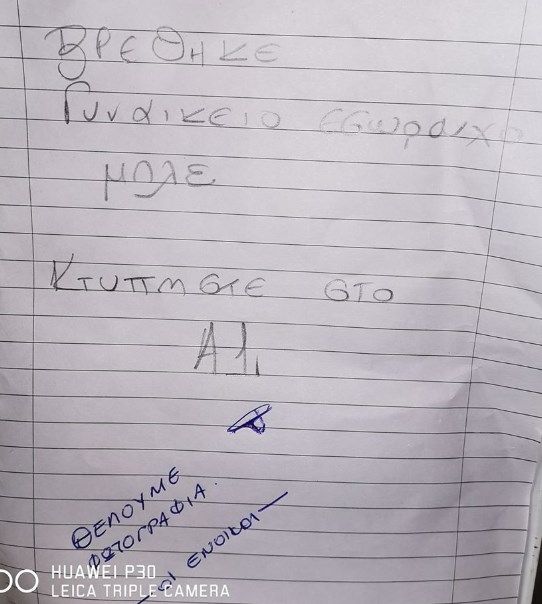 ΒΡΕΘΗΚΕ
Γυναικειο εσωρουχο
μπλε
Κτυπησετε στο
Α1.
ΘΕΛΟΥΜΕ
ΦΩΤΟΓΡΑΦΙΑ.
— ΟΙ ΕΝΟΙΚΟΙ —
HUAWEI P30
LEICA TRIPLE CAMERA